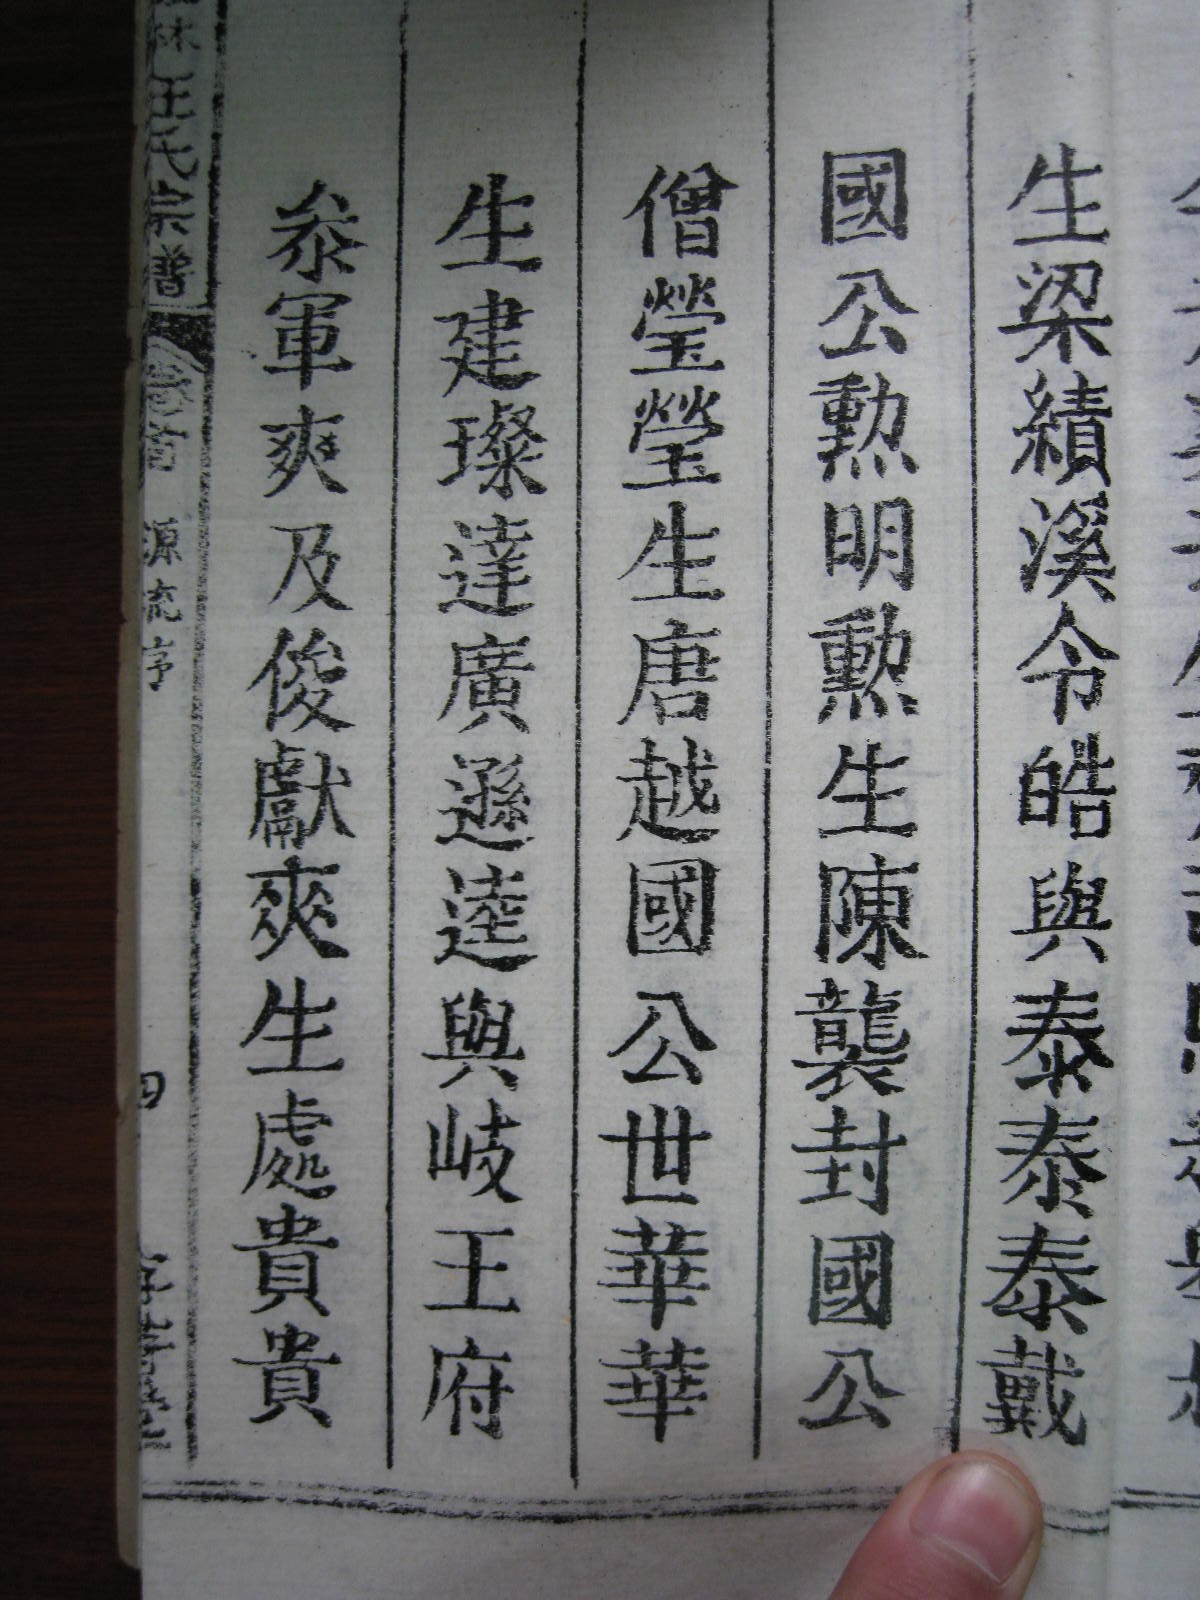 生梁績溪令皓與泰泰泰戴
國公勲明勲生陳襲封國公
僧瑩瑩生唐越國公世華華
生建璨達廣遜逵與岐王府
叅軍爽及俊獻爽生處貴貴
林王氏宗譜
卷首
源流序
四